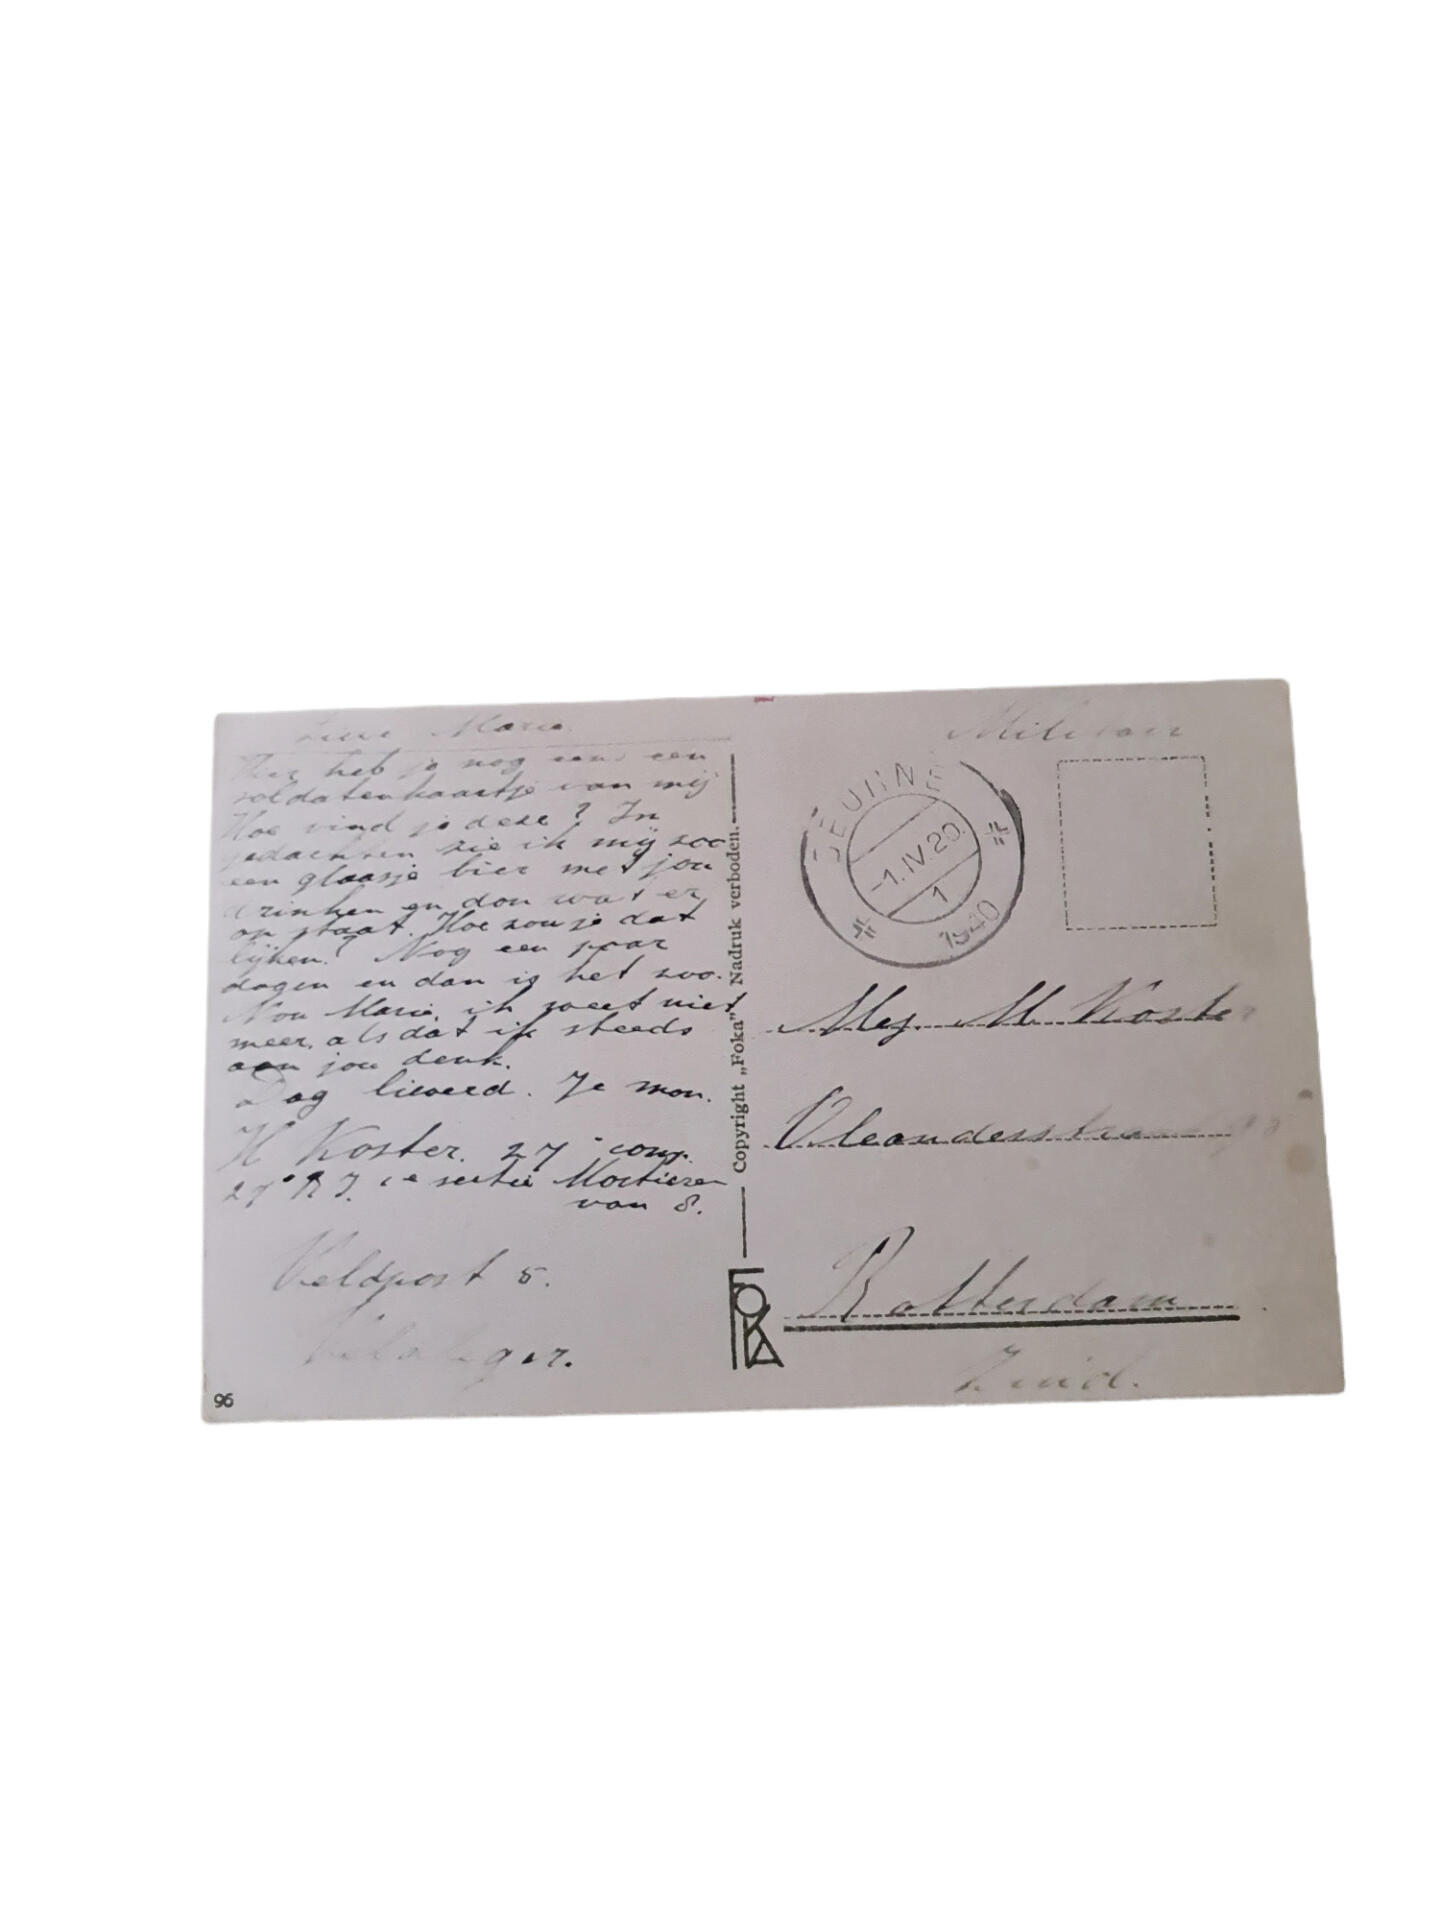 Lieve Marie.
Hier heb je nog eens een
soldatenkaartje van mij
Hoe vind je deze? In
gedachten zie ik mij zoo
een glaasje bier met jou
drinken en dan wat er
op staat. Hoe zou je dat
lijken? Nog een paar
dagen en dan is het zoo.
Nou Marie, ik weet niet
meer, als dat ik steeds
aan jou denk.
Dag lieverd. Je man.
H Koster. 27 comp.
27 R I. 1e sectie Mortieren
van 8.
Veldpost 5.
Veldleger.
96
Copyright „Foka” Nadruk verboden.
FOKA
Militair
DEURNE
-1.IV.20.
1
1940
Mej. M Koster
Oleanderstraat
Rotterdam
Zuid.